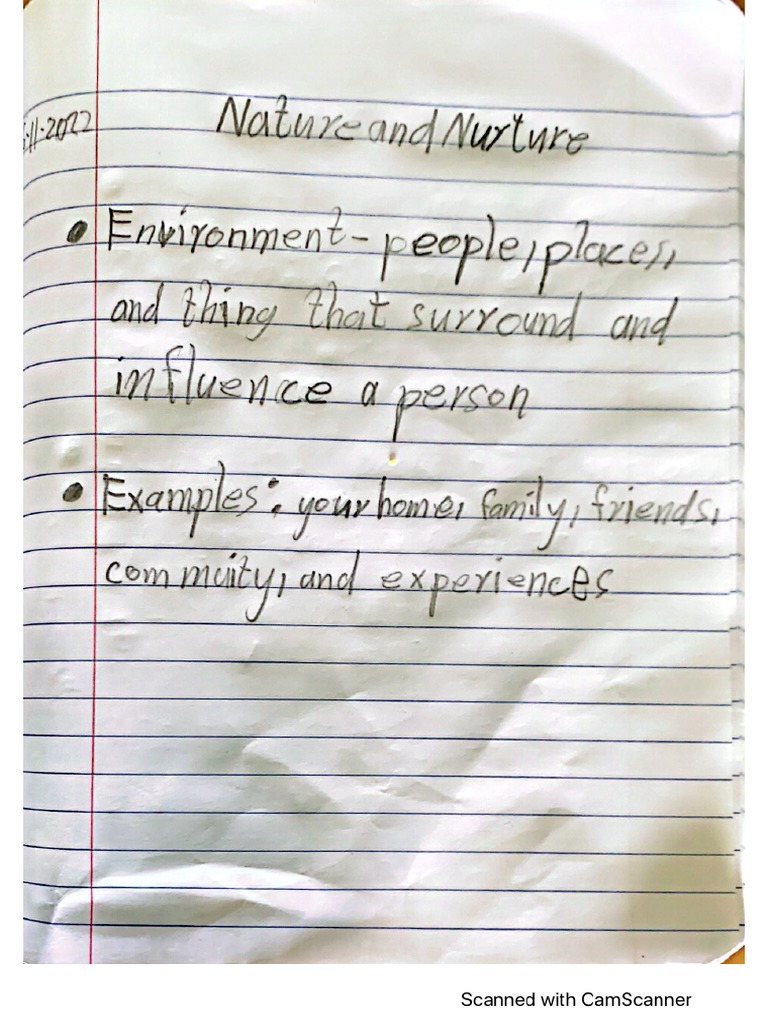 11-2022
Nature and Nurture
• Environment - people, places,
and thing that surround and
influence a person
• Examples: your home, family, friends,
commuity, and experiences
Scanned with CamScanner